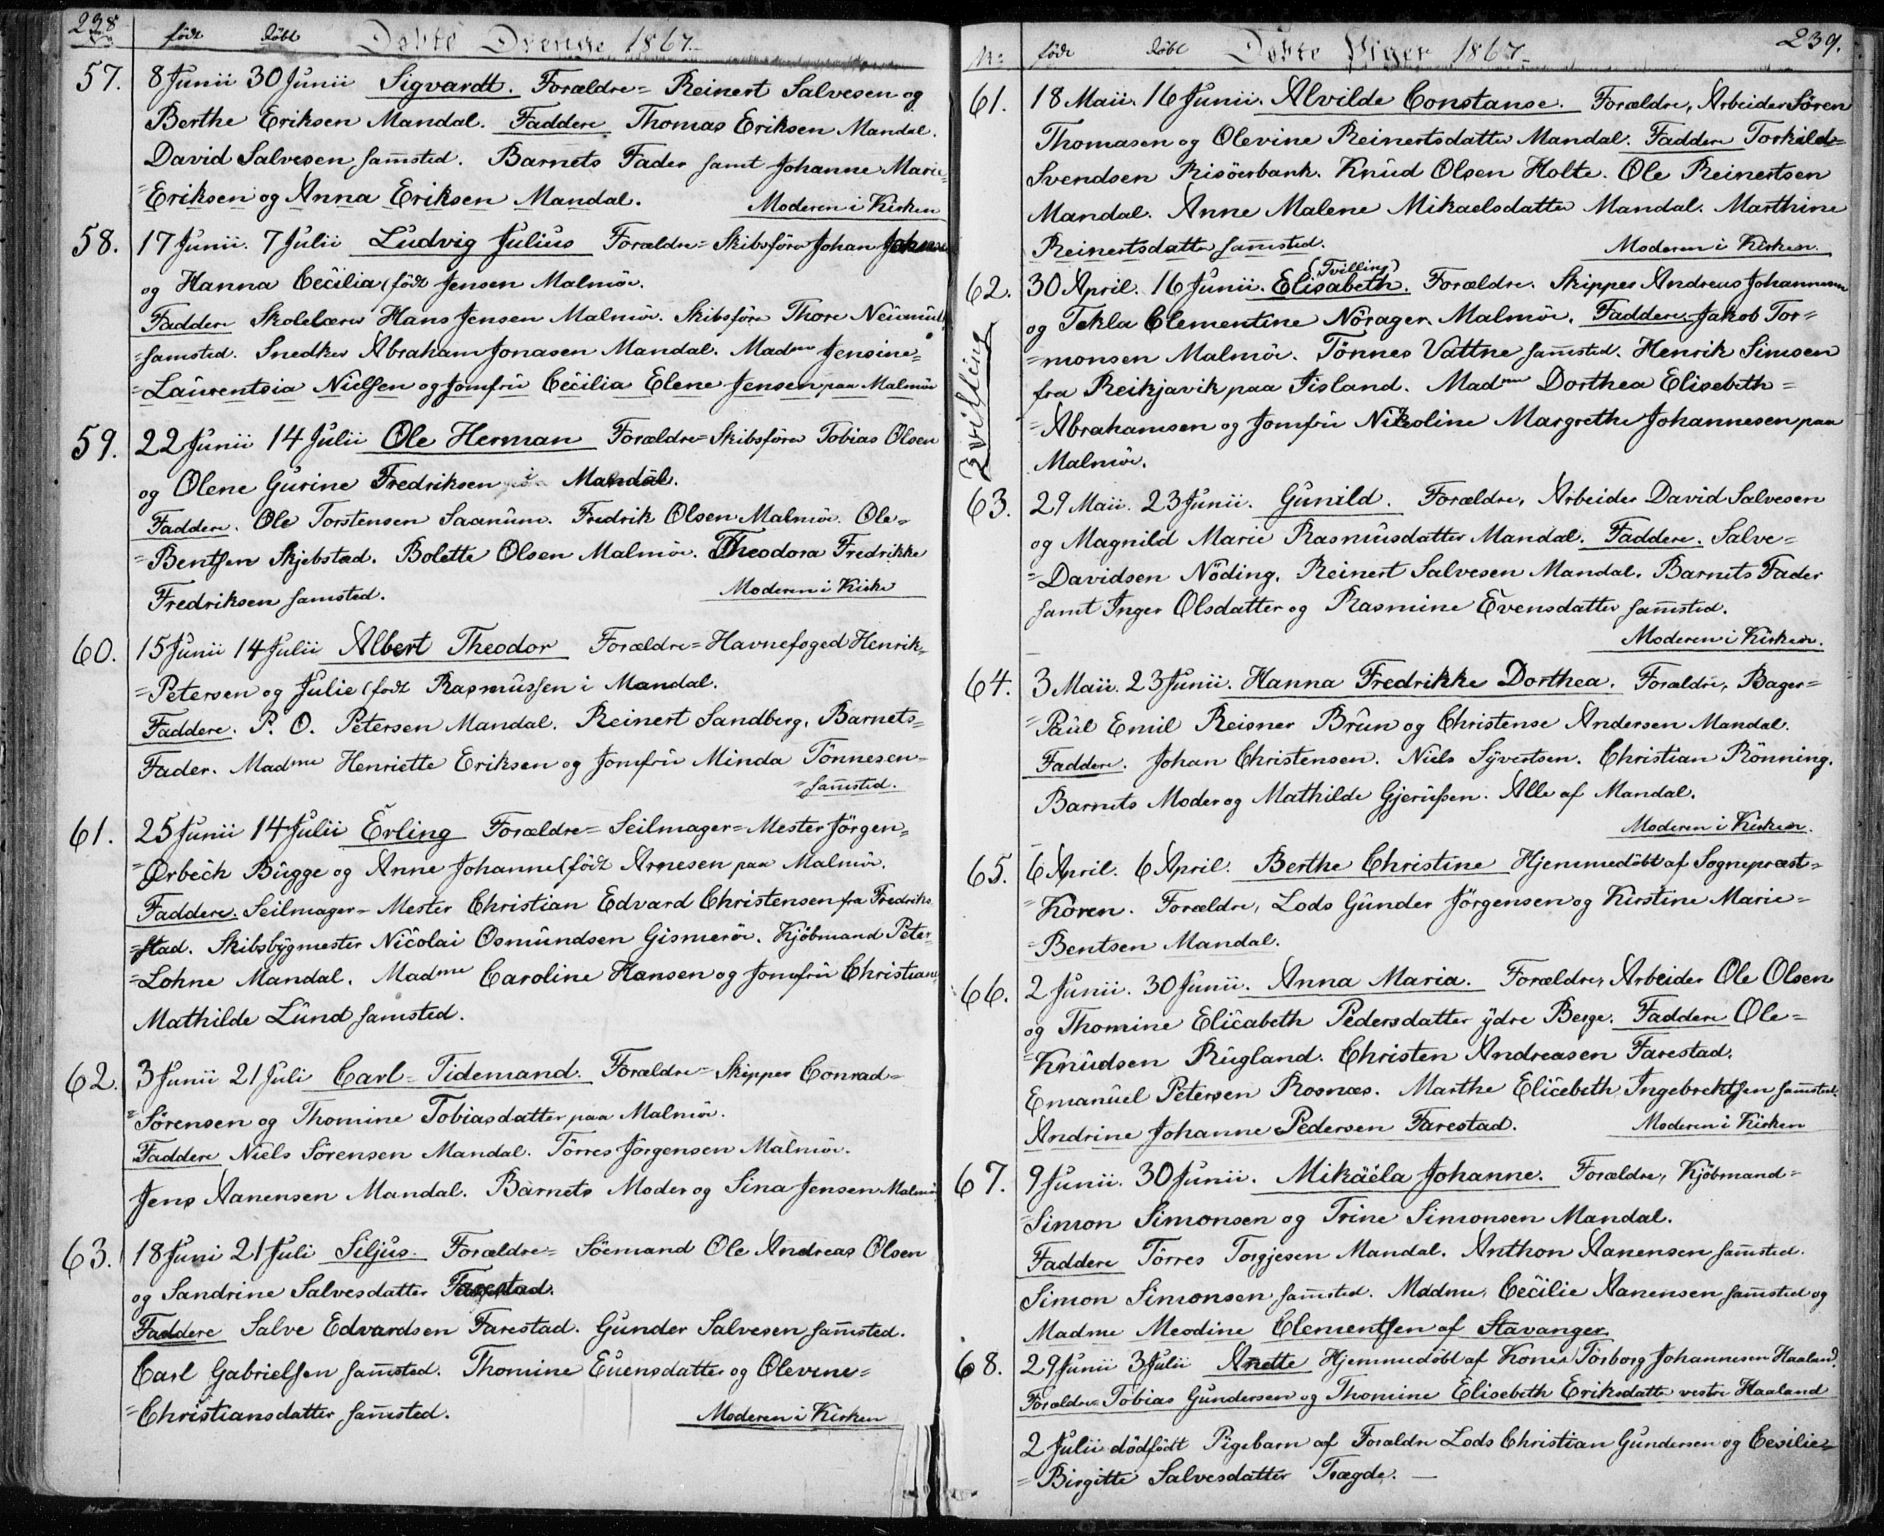 238
født døbt Døbte Drenge 1867
57. 8 Junii 30 Junii Sigvardt. Forældre= Reinert Salvesen og
Berthe Eriksen Mandal. Faddere Thomas Eriksen Mandal.
David Salvesen samsted. Barnets Fader samt Johanne Marie=
=Eriksen og Anna Eriksen Mandal. Moderen i Kirken
58. 17 Junii. 7 Julii Ludvig Julius Forældre= Skibsfører Johan
og Hanna Cecilia (født Jensen Malmöe.
Faddere Skolelærer Hans Jensen Malmöe. Skibsfører Thore
samsted. Snedker Abraham Jonasen Mandal. Madme Jensine=
=Laurentsia Nielsen og Jomfru Cecilia Elene Jensen paa Malmöe
59. 22 Junii 14 Julii Ole Herman Forældre= Skibsfører Tobias Olsen
og Olene Gurine Fredriksen i Mandal.
Faddere. Ole Torstensen Saanum. Fredrik Olsen Malmöe. Ole=
=Bentsen Skjebstad. Bolette Olsen Malmöe. Theodora Fredrikke
Fredriksen samsted. Moderen i Kirke
60. 15 Junii 14 Julii Albert Theodor Forældre= Havnefoged Henrik=
=Petersen og Julie (født Rasmussen i Mandal.
Faddere. P. O. Petersen Mandal. Reinert Sandberg. Barnets=
Fader. Madme Henriette Eriksen og Jomfru Minda Tönnesen=
=samsted.
61. 25 Junii 14 Julii Erling Forældre= Seilmager=Mester Jörgen=
=Örbech Bugge og Anne Johanne (født Arnesen paa Malmöe.
Faddere. Seilmager= Mester Christian Edvard Christensen fra Fredriks
=stad. Skibsbygmester Nicolai Osmundsen Gismeröe. Kjöbmand Peter=
=Lohne Mandal. Madme Caroline Hansen og Jomfru Christiane
Mathilde Lund samsted.
62. 3 Junii 21 Juli Carl= Tidemand. Forældre= Skipper Conrad=
=Sörensen og Thomine Tobiasdatter paa Malmöe.
Faddere Niels Sörensen Mandal. Törres Jörgensen Malmöe.
Jens Aanensen Mandal. Barnets Moder og Sina Jensen Malmöe
63. 18 Juni 21 Juli Siljus. Forældre= Söemand Ole Andreas Olsen
og Sandrine Salvesdatter Farestad.
Faddere Salve Edvardsen Farestad. Gunder Salvesen samsted.
Carl Gabrielsen samsted. Thomine Evensdatter og Olevine=
=Christiansdatter samsted. Moderen i Kirken
239.
Nr: født døbt Døbte Piger 1867
61. 18 Maii. 16 Junii. Alvilde Constanse. Forældre, Arbeider Sören
Thomasen og Olevine Reinertsdatter Mandal. Faddere Torkild=
Svendsen Risöerbank. Knud Olsen Holte. Ole Reinertsen
Mandal. Anne Malene Mikaelsdatter Mandal. Marthine
Reinertsdatter samsted. Moderen i Kirken.
(Tvilling)
62. 30 April. 16 Junii. Elisabeth. Forældre. Skipper Andreas Johannesen
og Tekla Clementine Nörager Malmöe. Faddere. Jakob Tor=
=monsen Malmöe. Tönnes Vattne samsted. Henrik Simsen
Tvilling
fra Reikjavik paa Iisland. Madme Dorthea Elisebeth=
=Abrahamsen og Jomfru Nikoline Margrethe Johannesen paa
Malmöe.
63. 29 Maii. 23 Junii. Gunild. Forældre, Arbeider David Salvesen
og Magnild Marie Rasmusdatter Mandal. Faddere. Salve=
=Davidsen Nöding. Reinert Salvesen Mandal. Barnets Fader
samt Inger Olsdatter og Rasmine Evensdatter samsted.
Moderen i Kirken.
64. 3 Maii. 23 Junii. Hanna Fredrikke Dorthea. Forældre, Bager=
=Paul Emil Reisner Brun og Christense Andersen Mandal.
Faddere. Johan Christensen. Niels Syvertsen. Christian Rönning.
Barnets Moder og Mathilde Gjerussen. Alle af Mandal.
Moderen i Kirken.
65. 6 April. 6 April. Berthe Christine Hjemmedöbt af Sognepræst=
=Koren. Forældre, Lods Gunder Jörgensen og Kirstine Marie=
=Bentsen Mandal.
66. 2 Junii. 30 Junii. Anna Maria. Forældre, Arbeider Ole Olsen
og Thomine Elisabeth Pedersdatter ydre Berge. Faddere Ole=
=Knudsen Rugland. Christen Andreasen Farestad.
Emanuel Petersen Rosnæs. Marthe Elicebeth Ingebrektsen samsted.
Andrine Johanne Pedersen Farestad. Moderen i Kirken
67. 9 Junii. 30 Junii. Mikäela Johanne. Forældre, Kjöbmand=
=Simon Simonsen og Trine Simonsen Mandal.
Faddere Törres Torgjesen Mandal. Anthon Aanensen samsted.
Simon Simonsen samsted. Madme, Cecilie Aanensen samsted og
Madme Meodine Clementsen af Stavanger.
68. 29 Junii 3 Julii Anette Hjemmedöbt af Konen Torborg Johannesen Haaland.
Forældre= Tobias Gundersen og Thomine Elisebeth Eriksdatter vestre Haaland
2 Julii dödfödt Pigebarn af Forældre Lods Christian Gundersen og Cesilie=
=Birgitte Salvesdatter Trægde. —